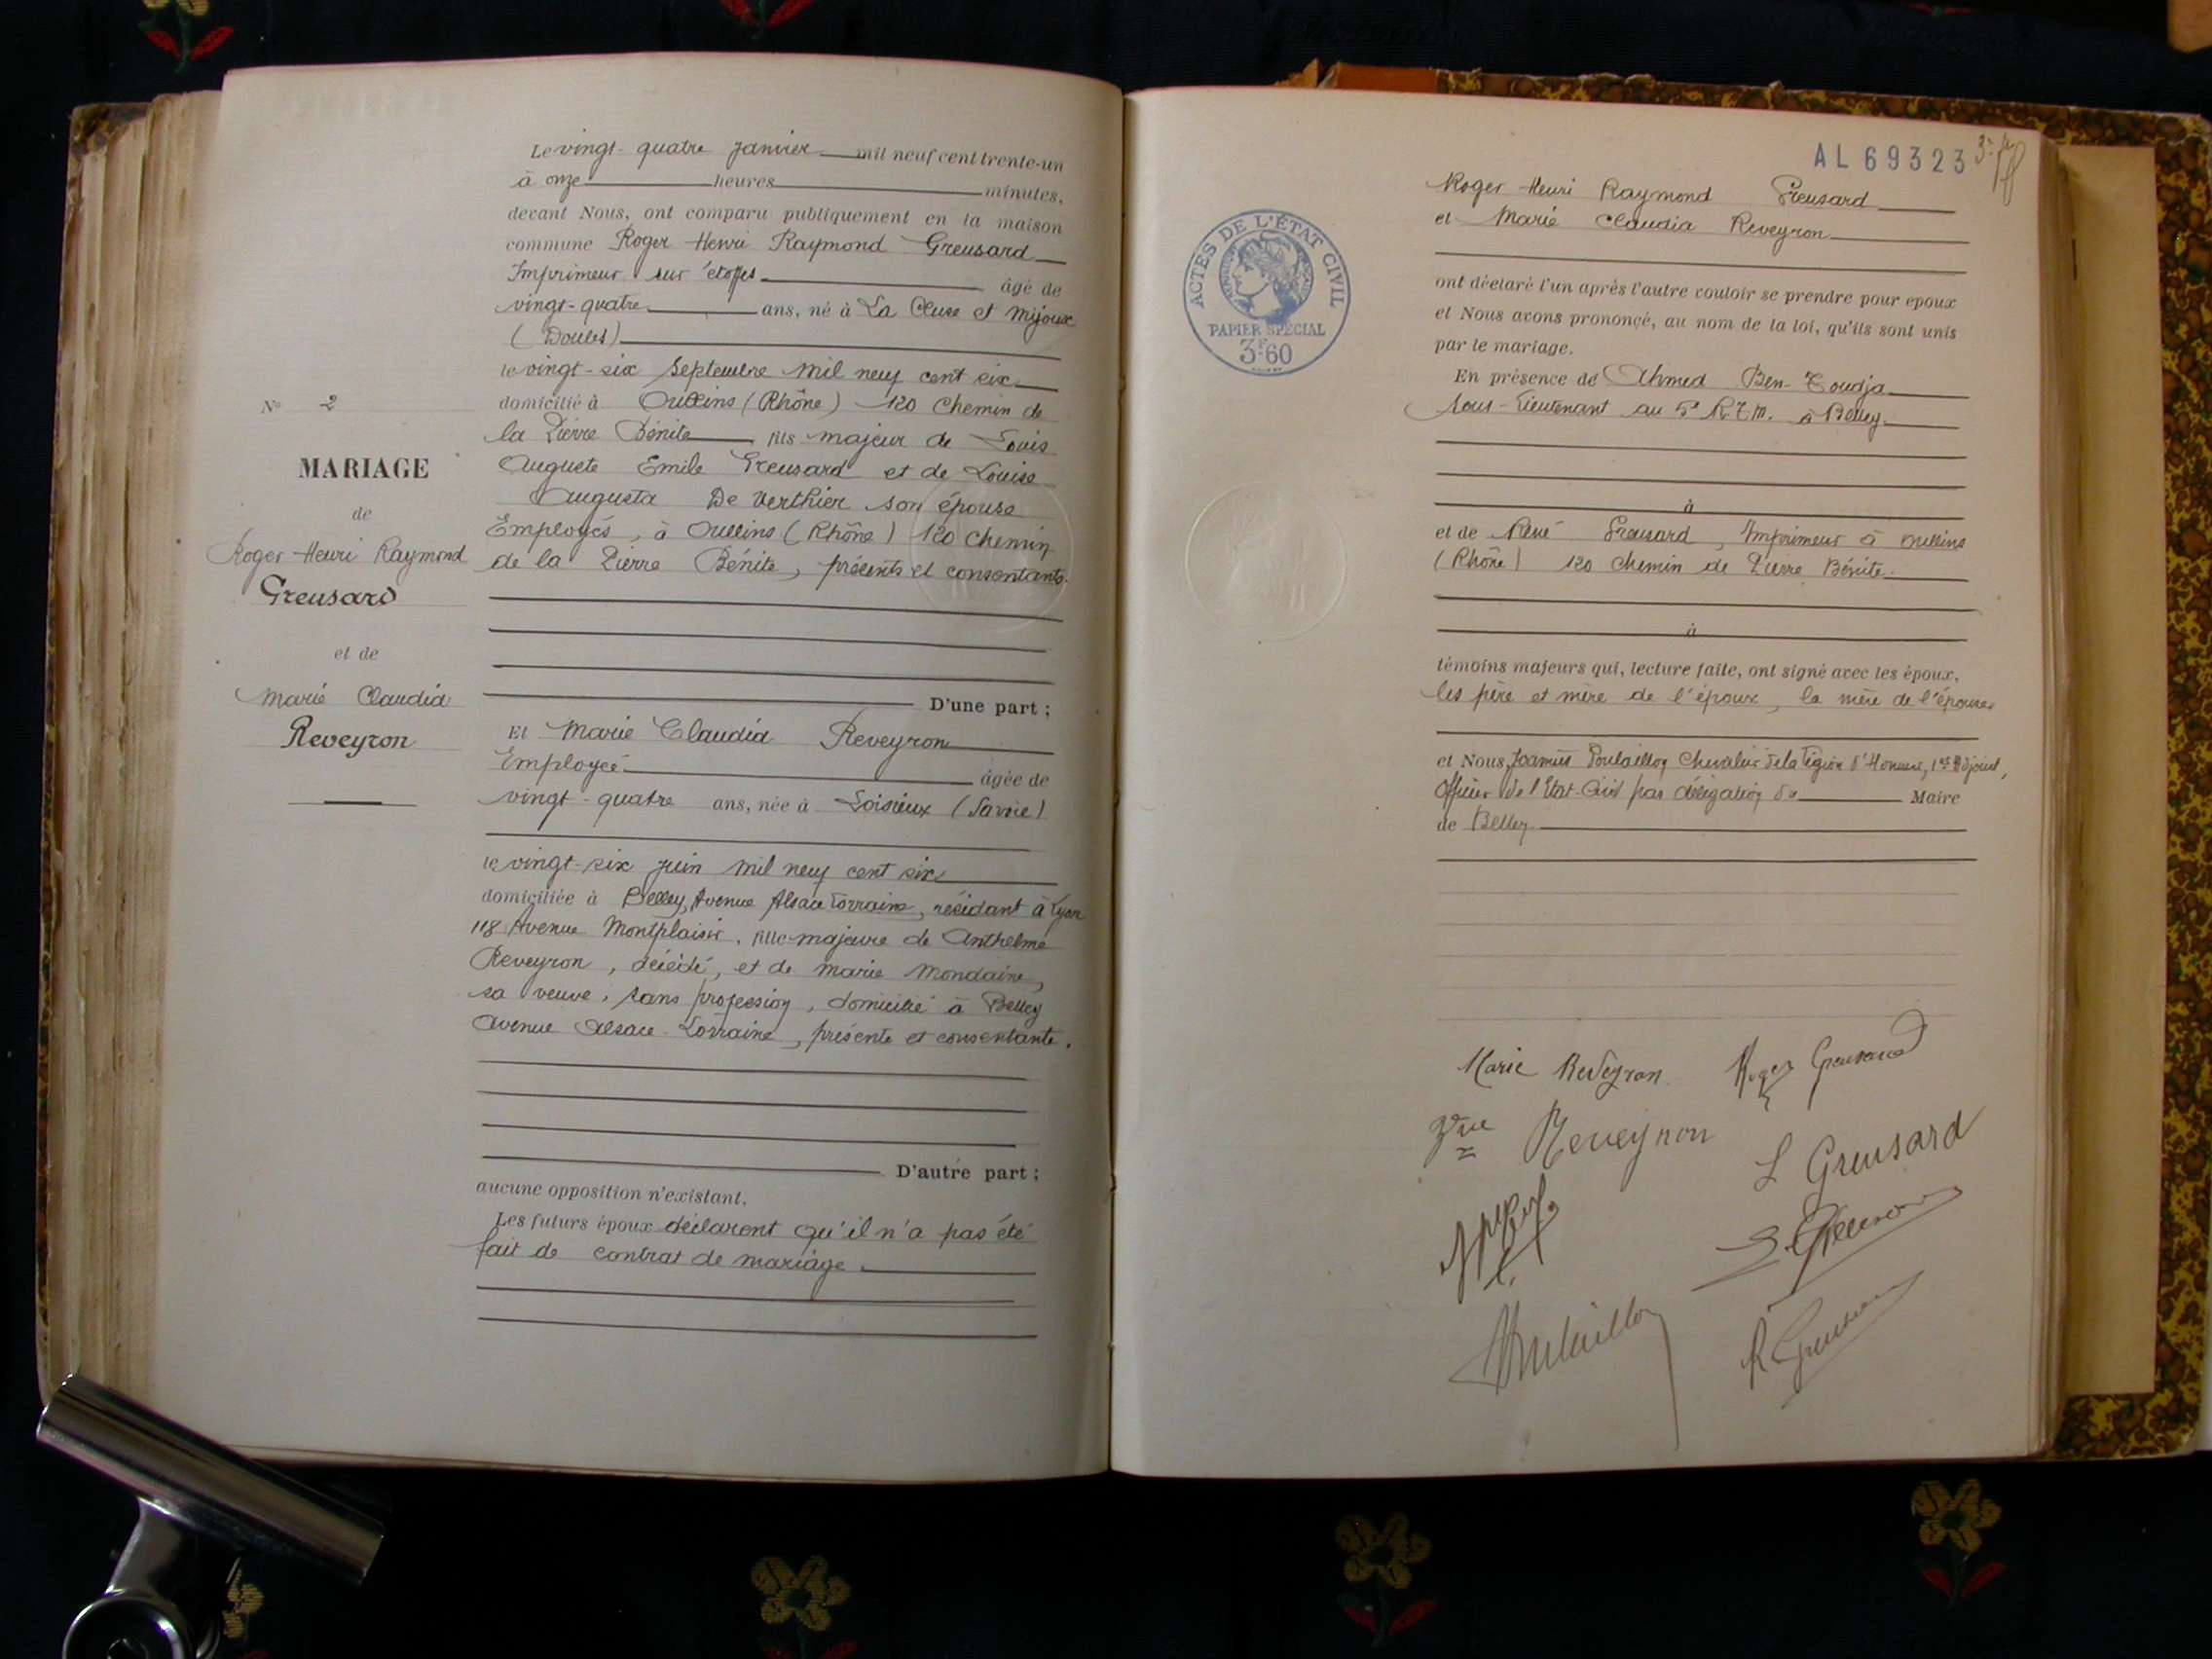 Le vingt-quatre janvier mil neuf cent trente-un
à onze heures minutes,
devant Nous, ont comparu publiquement en la maison
commune Roger Henri Raymond Greusard
Imprimeur sur étoffes âgé de
vingt-quatre ans, né à La Cluse et Mijoux
(Doubs)
le vingt-six septembre mil neuf cent six
domicilié à Oullins (Rhône) 120 chemin de
la Pierre Bénite fils majeur de Louis
Auguste Emile Greusard et de Louise
Augusta De Verthier son épouse
Employés, à Oullins (Rhône) 120 chemin
de la Pierre Bénite, présents et consentants.
D'une part ;
Et Marie Claudia Reveyron
Employée âgée de
vingt-quatre ans, née à Loisieux (Savoie)
le vingt-six juin mil neuf cent six
domiciliée à Belley, Avenue Alsace Lorraine, résidant à Lyon
118 Avenue Montplaisir, fille majeure de Anthelme
Reveyron, décédé, et de Marie Mondaine,
sa veuve, sans profession, domicilié à Belley
Avenue Alsace-Lorraine, présente et consentante.
D'autre part ;
aucune opposition n'existant.
Les futurs époux déclarent qu'il n'a pas été
fait de contrat de mariage
N° 2
MARIAGE
de
Roger Henri Raymond
Greusard
et de
Marie Claudia
Reveyron
AL 69323
Roger Henri Raymond Greusard
et Marie Claudia Reveyron
ont déclaré l'un après l'autre vouloir se prendre pour époux
et Nous avons prononcé, au nom de la loi, qu'ils sont unis
par le mariage.
En présence de Ahmed Ben-Toudja
sous-lieutenant au 5e R.T.M. à Belley
à
et de René Greusard, Imprimeur à Oullins
(Rhône) 120 chemin de Pierre Bénite
à
témoins majeurs qui, lecture faite, ont signé avec les époux,
les père et mère de l'époux, la mère de l'épouse
et Nous, Joannès Poulaillon Chevalier de la Légion d'Honneur, 1er Adjoint,
Officier de l'Etat-Civil par délégation du Maire
de Belley
ACTES DE L'ÉTAT CIVIL
PAPIER SPÉCIAL
3F60
Marie Reveyron Roger Greusard
Vve Reveyron
L Greusard
R Greusard